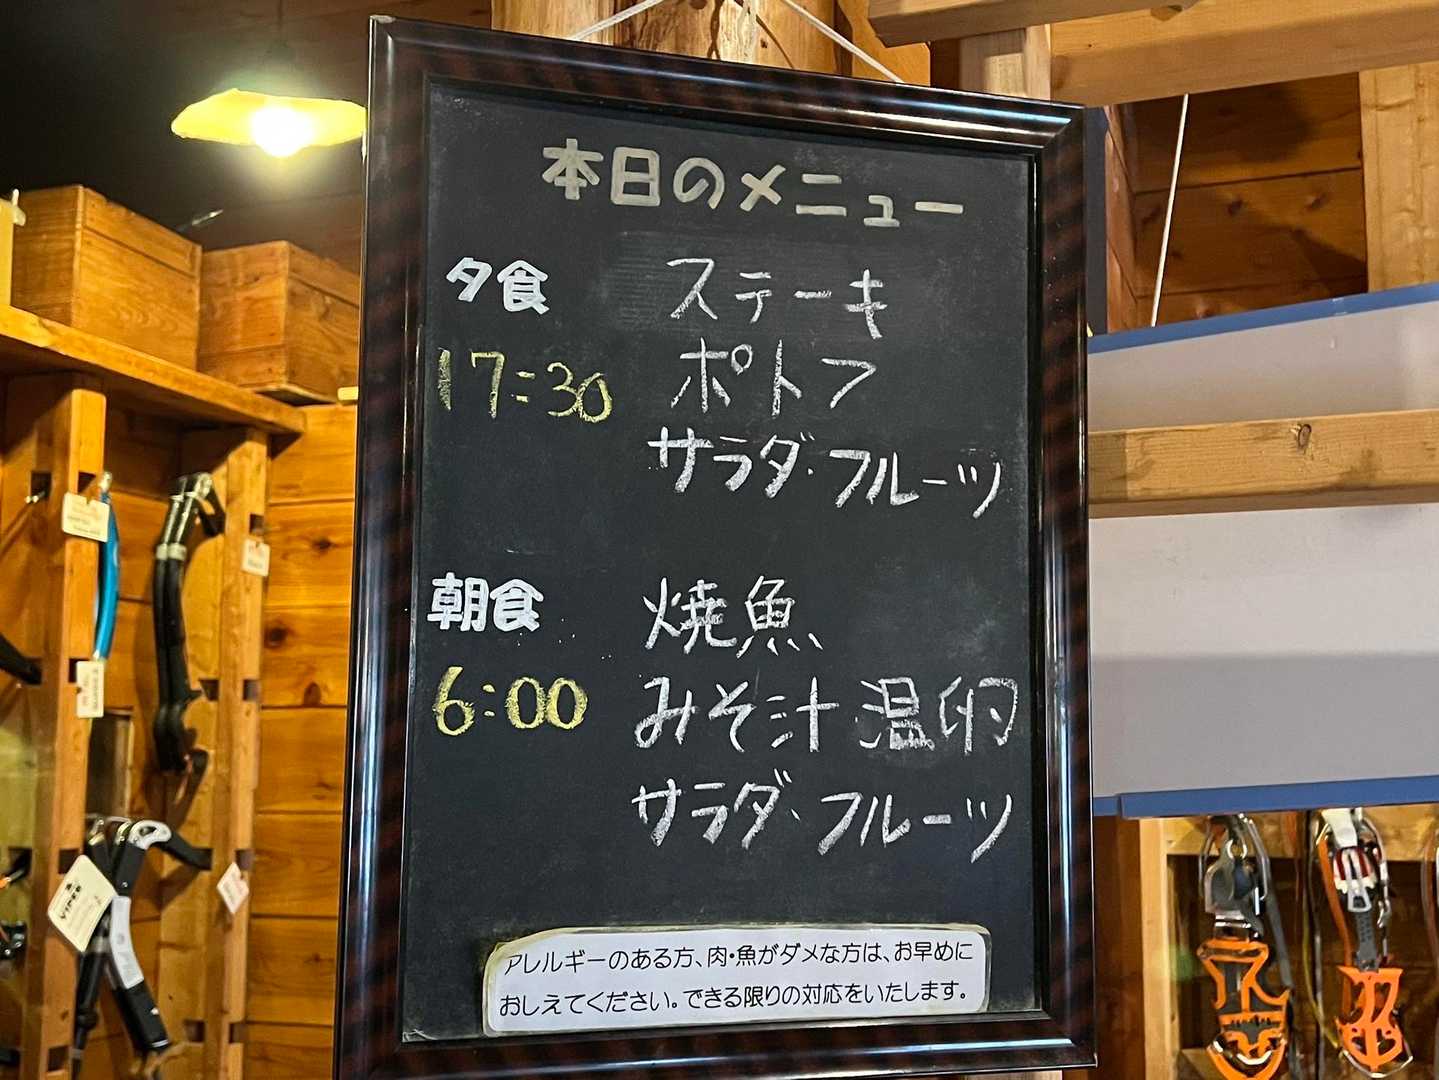 本日のメニュー
夕食
ステーキ
17:30
ポトフ
サラダ・フルーツ
朝食
焼魚
6:00
みそ汁 温卵
サラダ・フルーツ
アレルギーのある方、肉・魚がダメな方は、お早めに
おしえてください。できる限りの対応をいたします。